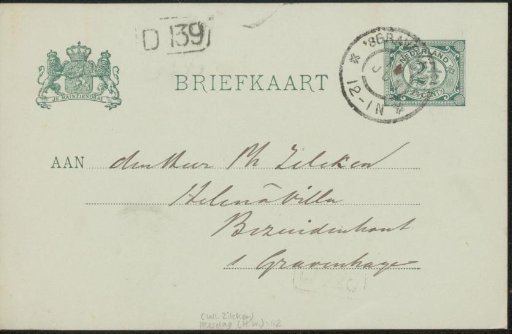 D 139
JE MAINTIENDRAI
BRIEFKAART
NEDERLAND
2½
CENT
'SGRAV
12-1N
AAN den Heer Ph Zilcken
Helena Villa
Bezuidenhout
s Gravenhage
(W. Zilcken)
Mesdag (H.W.) 12